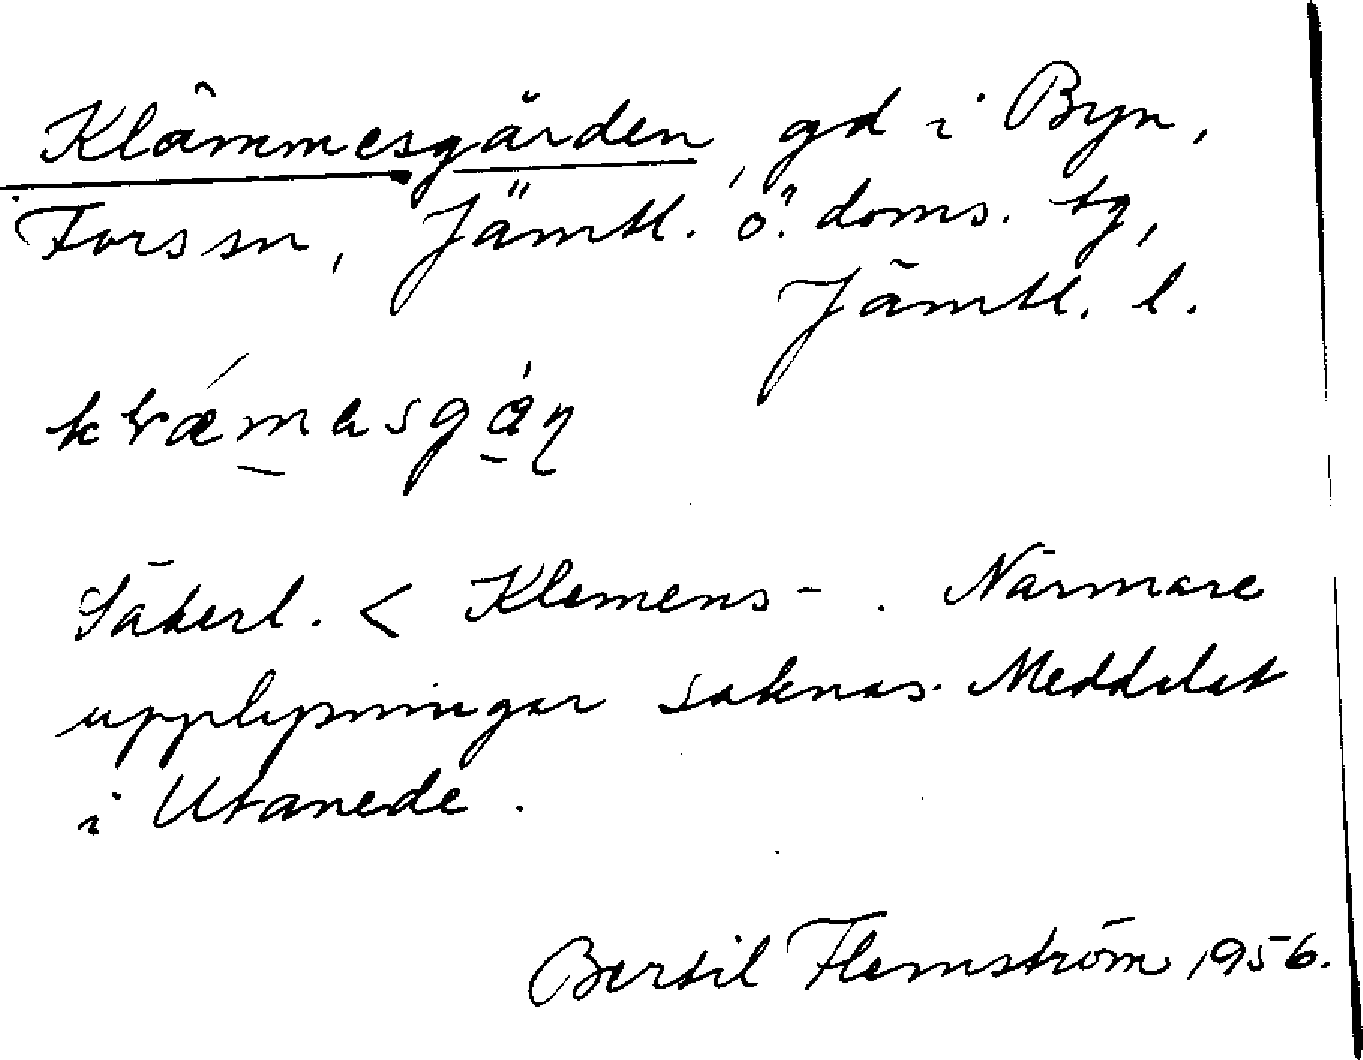 Klämmesgården, gd i Byn,
Fors sn, Jämtl. ö. doms. tg,
Jämtl. l.
Säkerl. < Klemens- . Närmare
upplysningar saknas. Meddelat
i Utanede.
Bertil Flemström 1956.